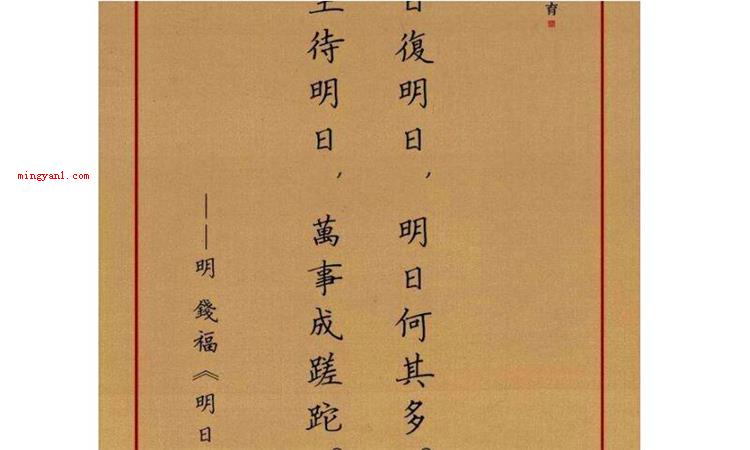 育
日復明日，明日何其多。
待明日，萬事成蹉跎。
——明 錢福《明日
mingyan1.com